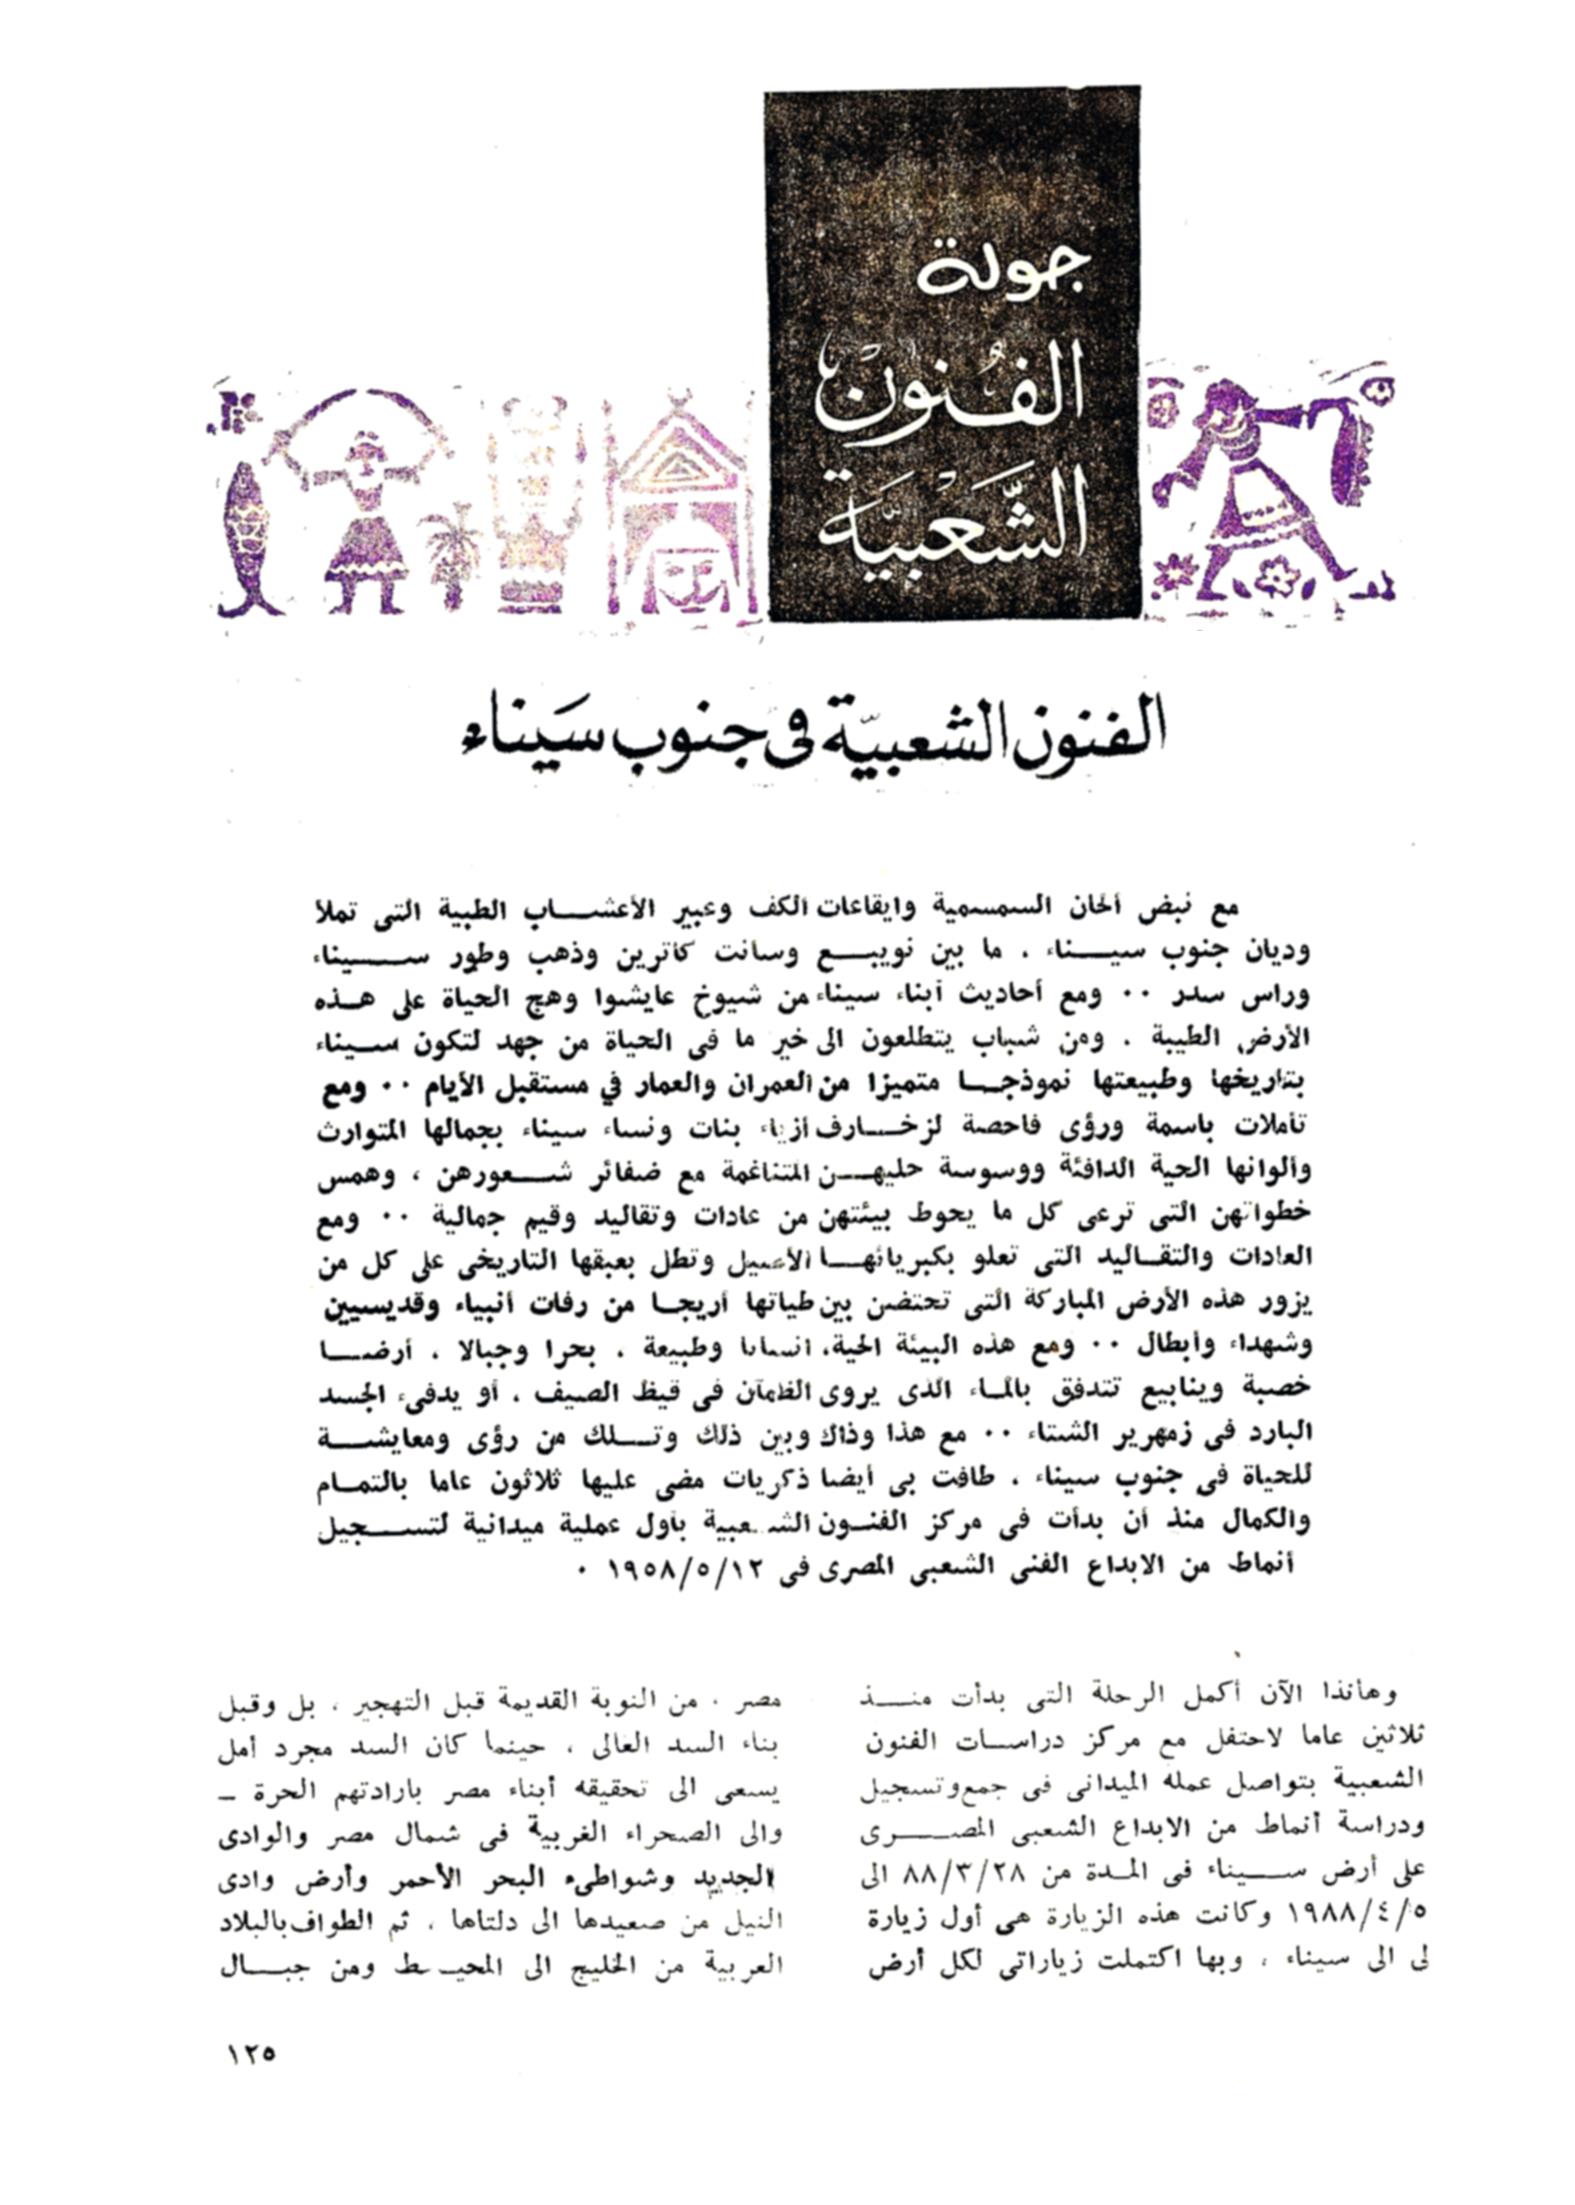 جولة
الفنون
الشعبية
الفنون الشعبية فى جنوب سيناء
مع نبض ألحان السمسمية وايقاعات الكف وعبير الأعشاب الطبية التى تملأ
وديان جنوب سيناء ، ما بين نويبع وسانت كاترين وذهب وطور سيناء
وراس سدر ٠٠ ومع أحاديث أبناء سيناء من شيوخ عايشوا وهج الحياة على هذه
الأرض الطيبة ، ومن شباب يتطلعون الى خير ما فى الحياة من جهد لتكون سيناء
بتاريخها وطبيعتها نموذجا متميزا من العمران والعمار في مستقبل الأيام ٠٠ ومع
تأملات باسمة ورؤى فاحصة لزخارف أزياء بنات ونساء سيناء بجمالها المتوارث
وألوانها الحية الدافئة ووسوسة حليهن المتناغمة مع ضفائر شعورهن ، وهمس
خطواتهن التى ترعى كل ما يحوط بيئتهن من عادات وتقاليد وقيم جمالية ٠٠ ومع
العادات والتقاليد التى تعلو بكبريائها الأصيل وتطل بعبقها التاريخى على كل من
يزور هذه الأرض المباركة التى تحتضن بين طياتها أريجا من رفات أنبياء وقديسيين
وشهداء وأبطال ٠٠ ومع هذه البيئة الحية، انسانا وطبيعة ، بحرا وجبالا ، أرضا
خصبة وينابيع تتدفق بالماء الذى يروى الظمآن فى قيظ الصيف ، أو يدفىء الجسد
البارد فى زمهرير الشتاء ٠٠ مع هذا وذاك وبين ذلك وتلك من رؤى ومعايشة
للحياة فى جنوب سيناء ، طافت بى أيضا ذكريات مضى عليها ثلاثون عاما بالتمام
والكمال منذ أن بدأت فى مركز الفنون الشعبية بأول عملية ميدانية لتسجيل
أنماط من الابداع الفنى الشعبى المصرى فى ١٢/٥/١٩٥٨ ٠
وهأنذا الآن أكمل الرحلة التى بدأت منذ
ثلاثين عاما لاحتفل مع مركز دراسات الفنون
الشعبية بتواصل عمله الميدانى فى جمع وتسجيل
ودراسة أنماط من الابداع الشعبى المصرى
على أرض سيناء فى المدة من ٨٨/٣/٢٨ الى
١٩٨٨/٤/٥ وكانت هذه الزيارة هى أول زيارة
لى الى سيناء ، وبها اكتملت زياراتى لكل أرض
مصر ، من النوبة القديمة قبل التهجير ، بل وقبل
بناء السد العالى ، حينما كان السد مجرد أمل
يسعى الى تحقيقه أبناء مصر بارادتهم الحرة –
والى الصحراء الغربية فى شمال مصر والوادى
الجديد وشواطىء البحر الأحمر وأرض وادى
النيل من صعيدها الى دلتاها ، ثم الطواف بالبلاد
العربية من الخليج الى المحيط ومن جبال
١٢٥